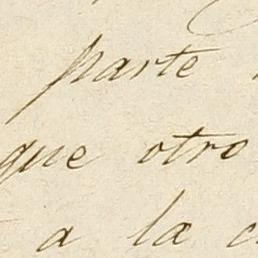 parte
que otro
a la